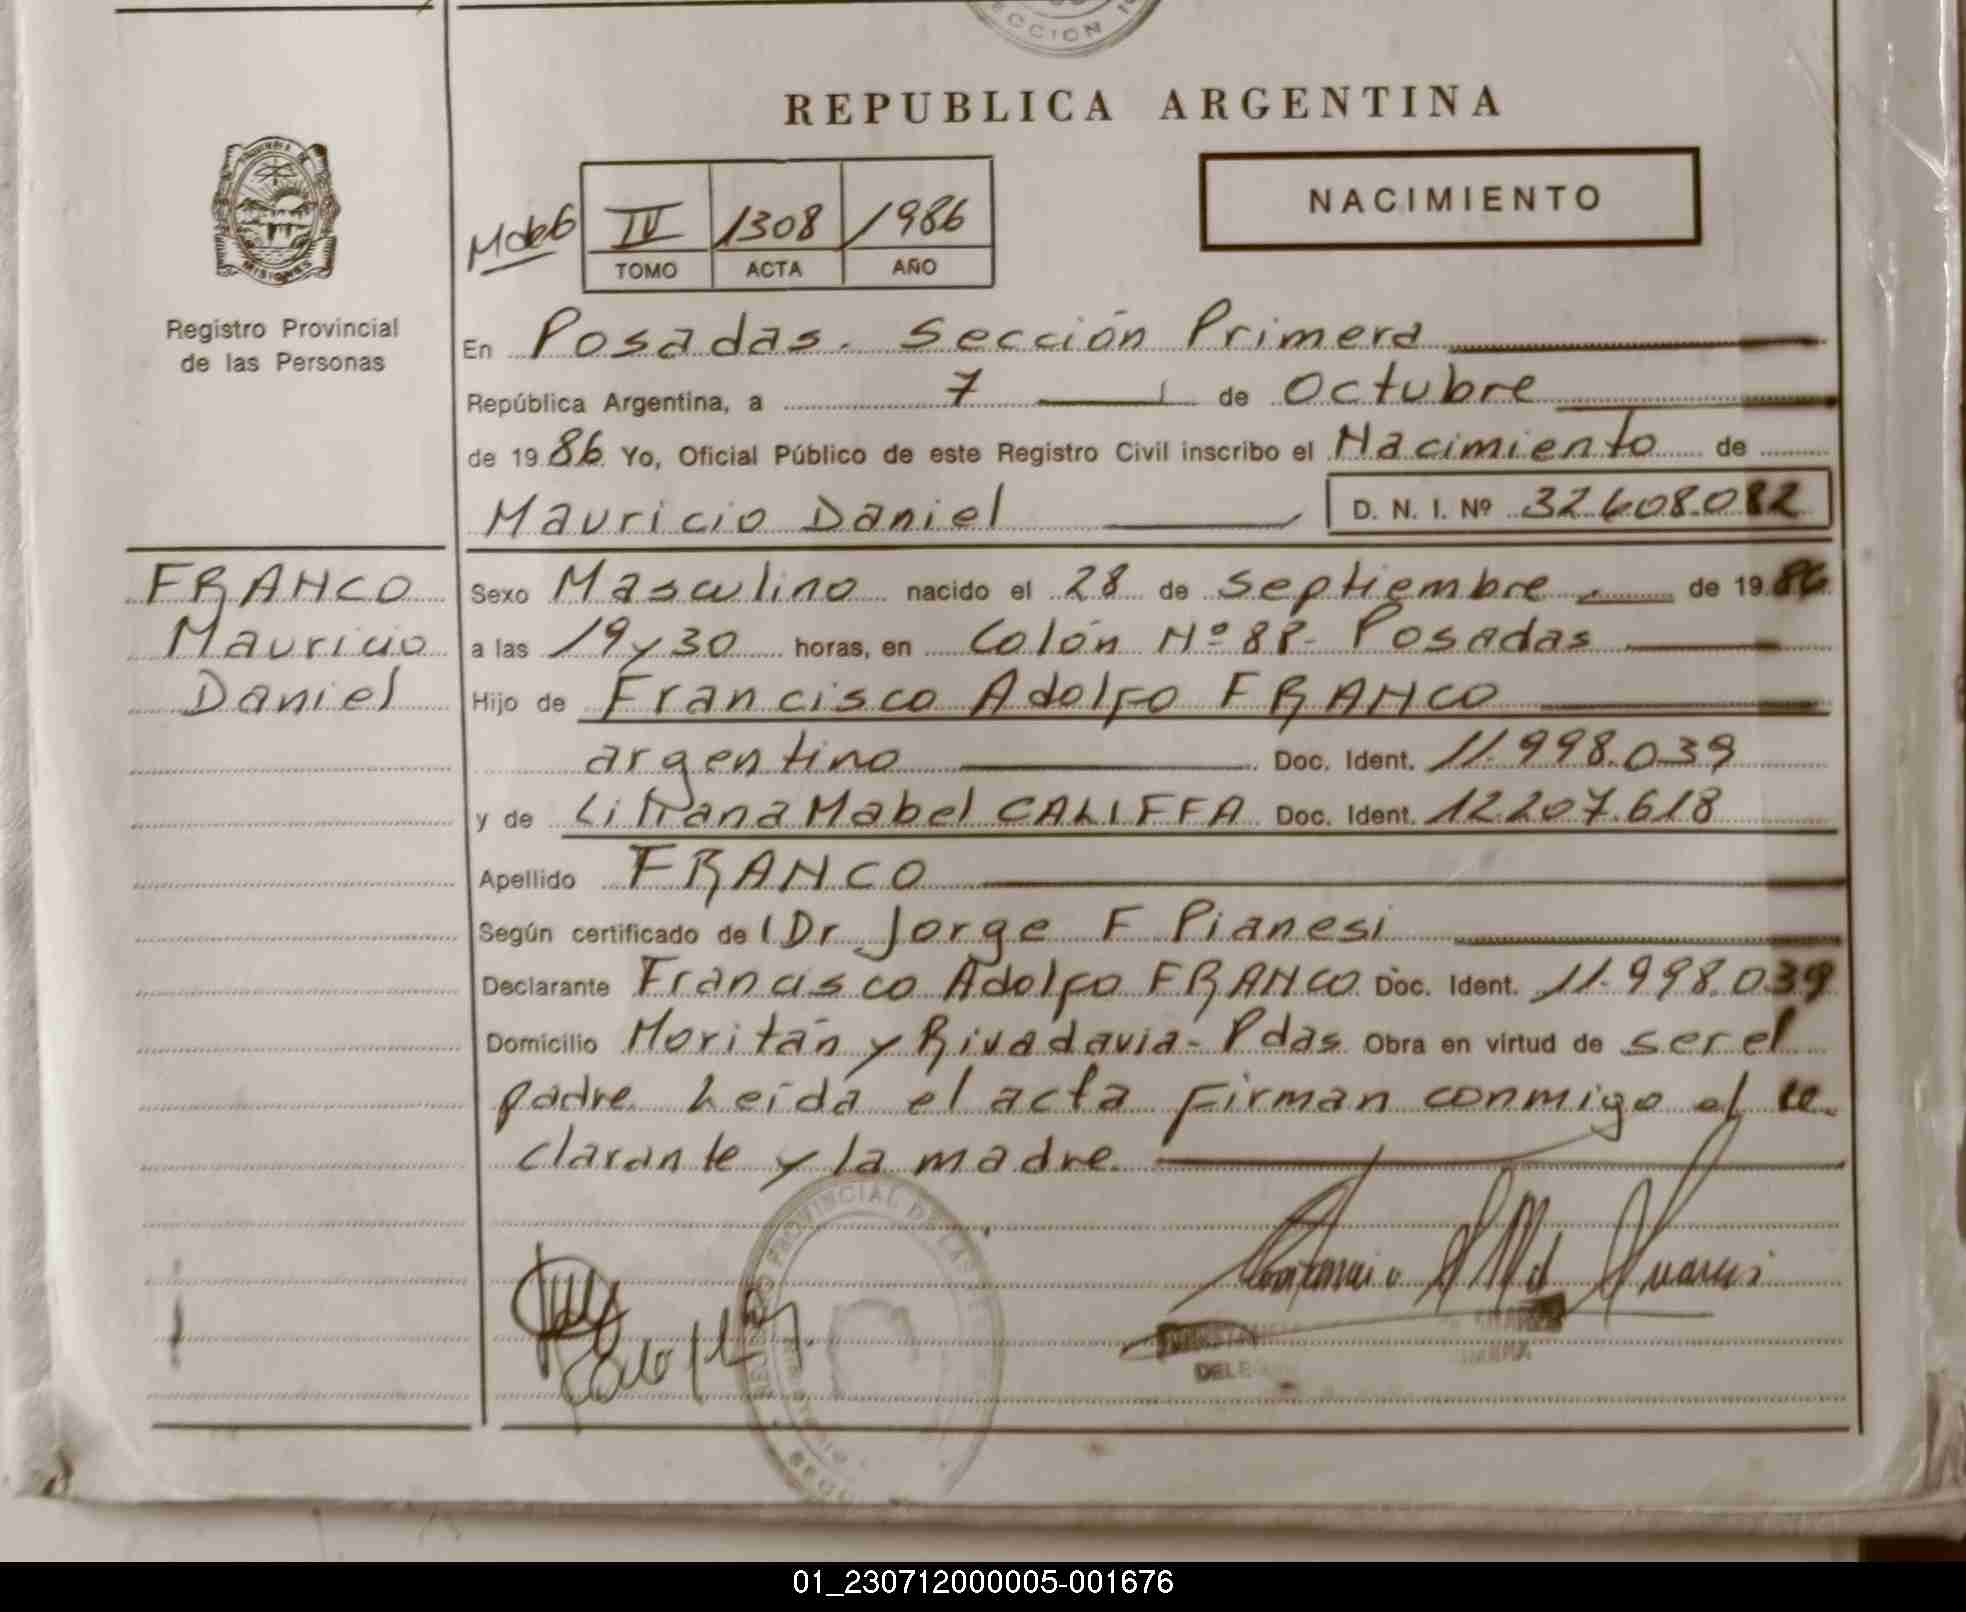 REPUBLICA ARGENTINA
NACIMIENTO
IV 1308 1986
TOMO ACTA AÑO
MISIONES
Registro Provincial
de las Personas
En Posadas. Sección Primera
República Argentina, a 7 de Octubre
de 1986 Yo, Oficial Público de este Registro Civil inscribo el Nacimiento de
Mauricio Daniel D. N. I. Nº 32.608.082
FRANCO
Mauricio
Daniel
Sexo Masculino nacido el 28 de Septiembre de 1986
a las 19 y 30 horas, en Colón Nº Posadas
Hijo de Francisco Adolfo FRANCO
argentino Doc. Ident. 11.998.039
y de Mabel CALIFFA Doc. Ident. 12.207.618
Apellido FRANCO
Según certificado de l Dr Jorge F Pianesi
Declarante Francisco Adolfo FRANCO Doc. Ident. 11.998.039
Domicilio Moritán y Rivadavia - Pdas Obra en virtud de ser el
padre. Leída el acta firman conmigo el de-
clarante y la madre.
PROVINCIAL DE LAS
DELE
01_230712000005-001676